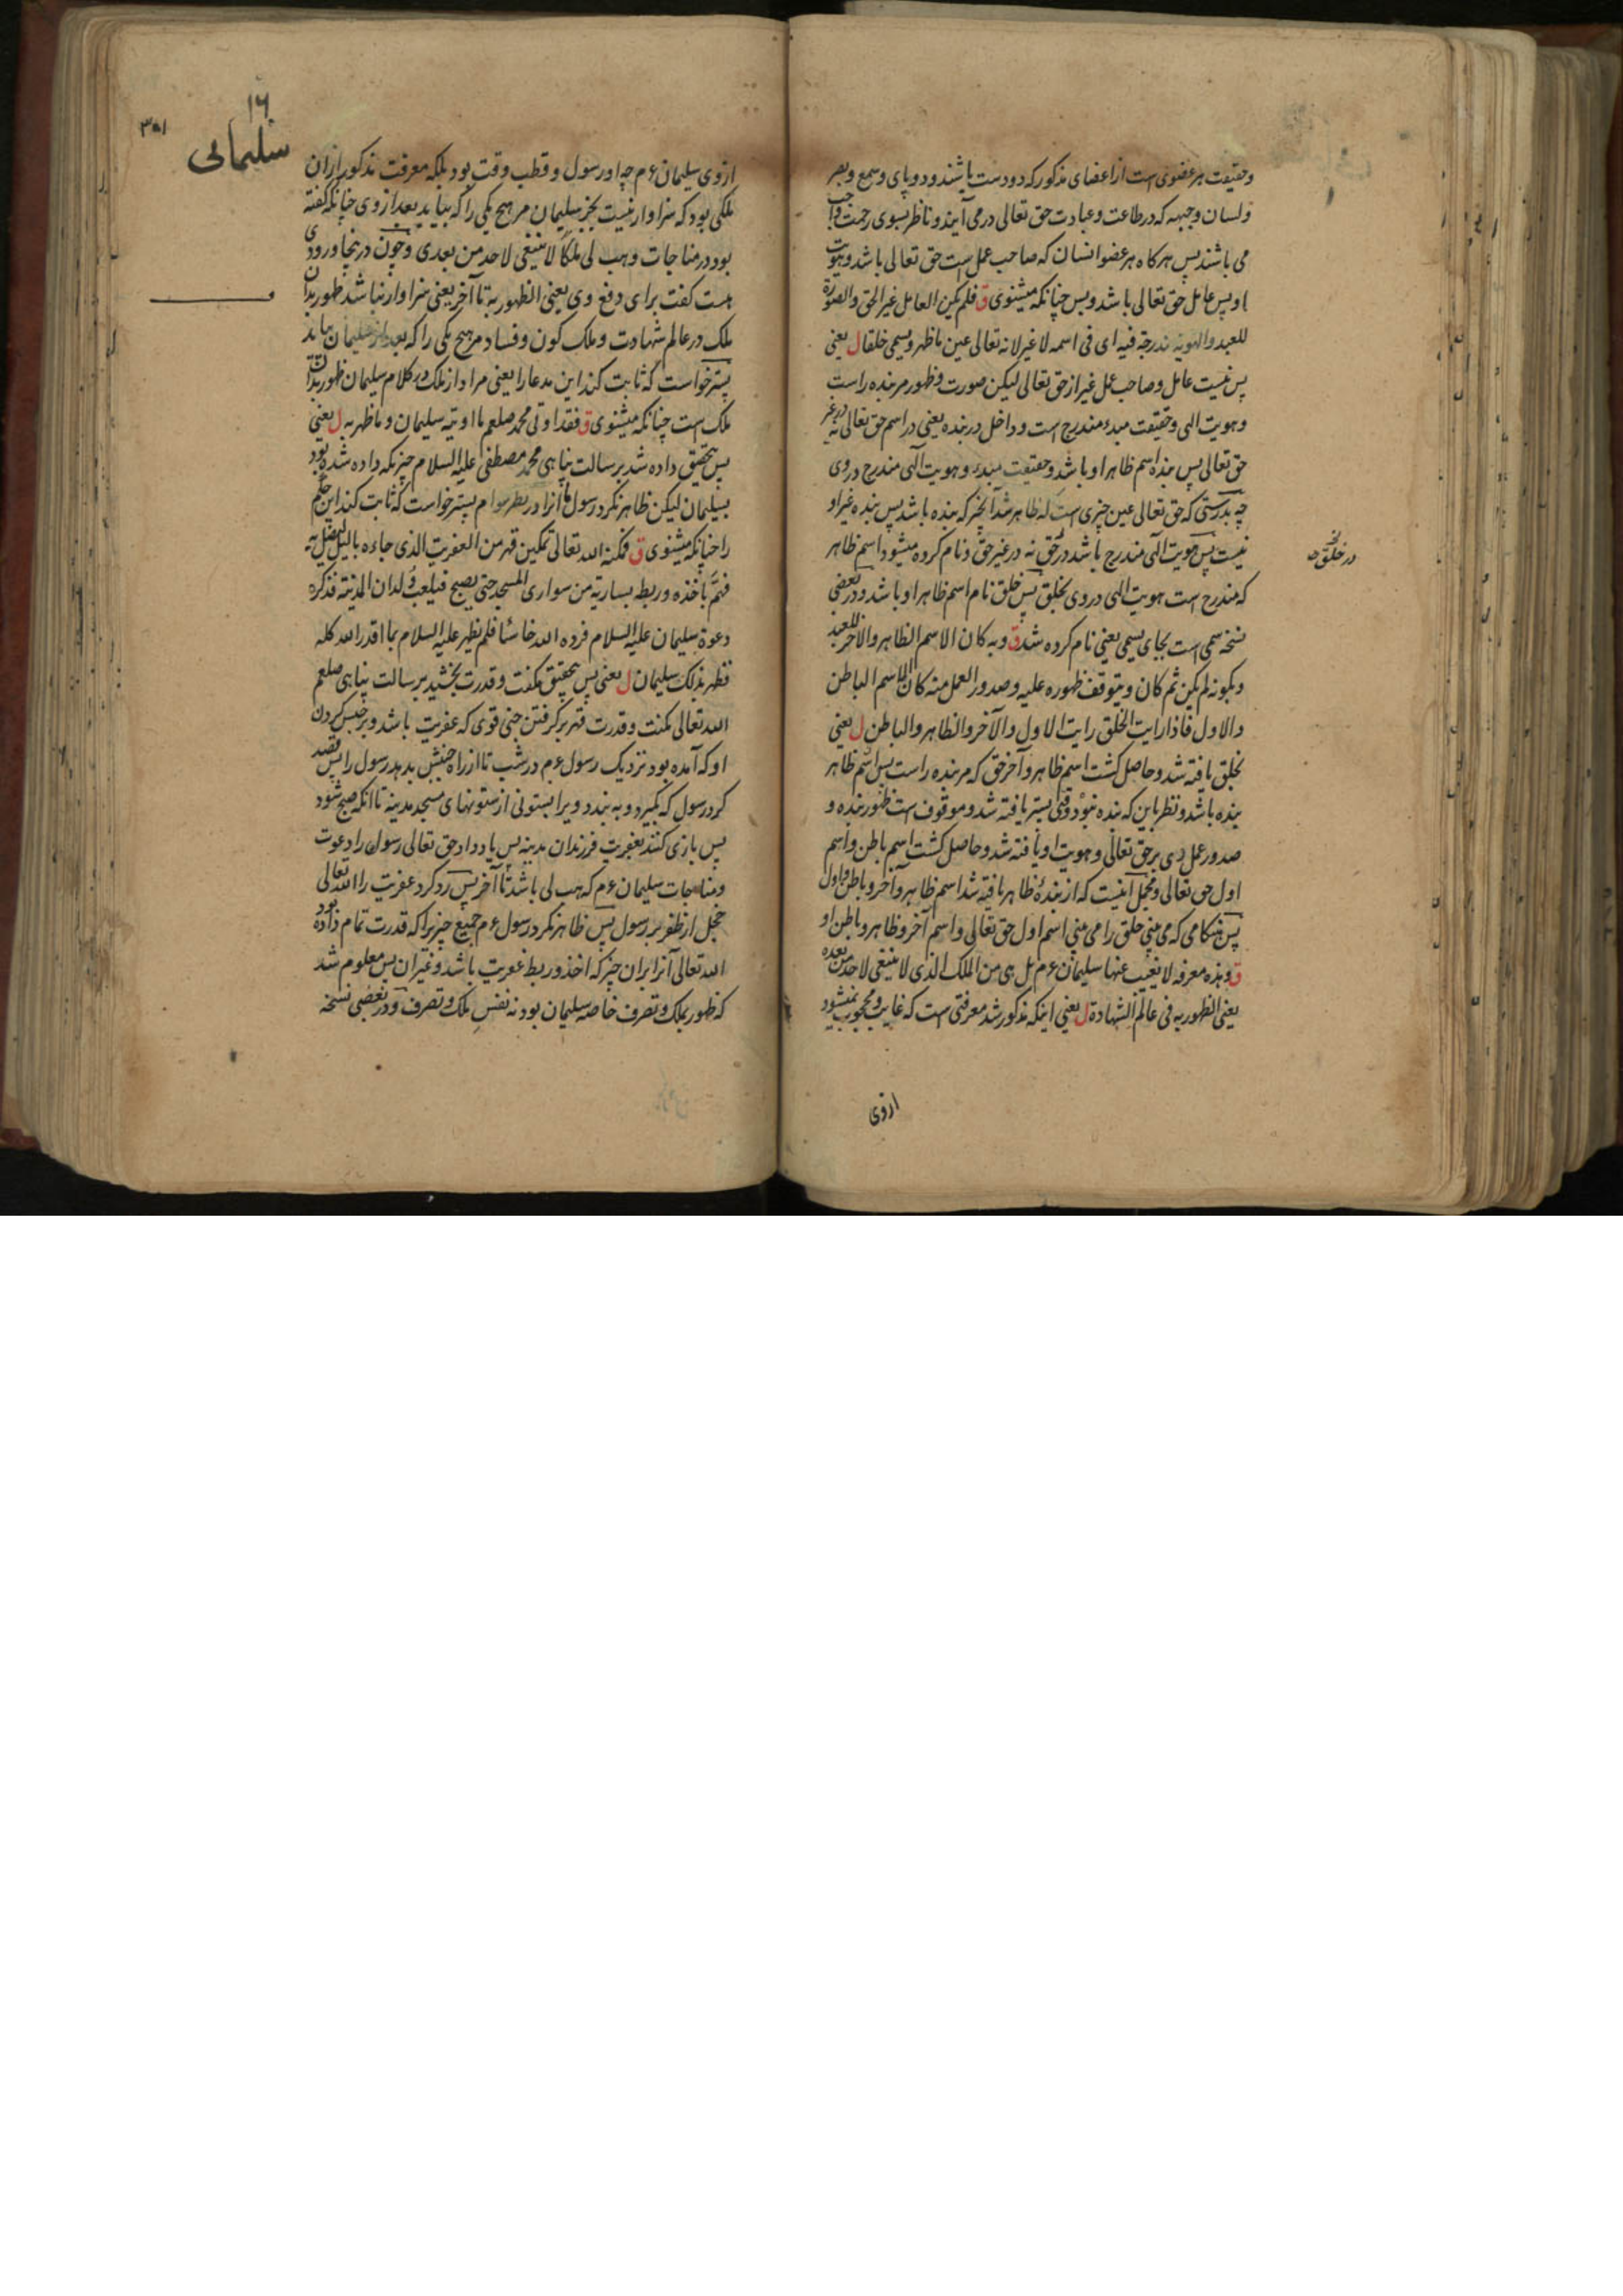 وحقیقت هر عضوی است از اعضای مذکور که دو دست باشند و دو پای و سمع و بصر
و لسان و جبهه که در طاعت و عبادت حق تعالی در می آیند و ناظر بسوی رحمت واجب
می باشند پس هرکاه هر عضو انسان که صاحب عمل است حق تعالی باشد و هویت
او پس عامل حق تعالی باشد و بس چنانکه میشنوی ق فلم یکن العامل غیر الحق والصورة
للعبد والهویة مندرجة فیه ای فی اسمه لا غیر لانه تعالی عین ما ظهر و یسمی خلقا ل یعنی
پس نیست عامل و صاحب عمل غیر از حق تعالی لیکن صورت و ظهور مر بنده راست
و هویت الهی و حقیقت مبدء مندرج است و داخل در بنده یعنی در اسم حق تعالی نه در غیر
حق تعالی پس بنده اسم ظاهر او باشد و حقیقت مبدء و هویت الهی مندرج در وی
چه بدرستی که حق تعالی عین چیزی است که ظاهر شد آنچیز که بنده باشد پس بنده غیر او
نیست پس هویت الهی مندرج باشد در حق نه در غیر حق و نام کرده میشود اسم ظاهر
که مندرج است هویت الهی در وی بخلق پس خلق نام اسم ظاهر او باشد و در بعضی
نسخه سمی است بجای یسمی یعنی نام کرده شد ق و به کان الاسم الظاهر والآخر للعبد
و بکونه لم یکن ثم کان و بتوقف ظهوره علیه و صدور العمل منه کان الاسم الباطن
والاول فاذا رایت الخلق رایت الاول والآخر والظاهر والباطن ل یعنی
بخلق یافته شد و حاصل کشت اسم ظاهر و آخر حق که مر بنده راست پس اسم ظاهر
بنده باشد و نظر باین که بنده نبود وقتی پستر یافته شد و موقوف است ظهور بنده و
صدور عمل وی بر حق تعالی و هویت او یافته شد و حاصل کشت اسم باطن و اسم
اول حق تعالی و مجمل آنیست که از بنده ظاهر یافته شد اسم ظاهر و آخر و باطن و اول
پس هنکامی که می بینی خلق را می بینی اسم اول حق تعالی و اسم آخر و ظاهر و باطن او
ق و هذه معرفة لا یغیب عنها سلیمان ع م بل هی من الملک الذی لا ینبغی لاحد من بعده
یعنی الظهور به فی عالم الشهادة ل یعنی اینکه مذکور شد معرفتی است که غایب و محجوب نمیشود
در خلق
ازوی
۱۶
سلیمانی
۳۰۱
ازوی سلیمان ع م چه او رسول و قطب وقت بود بلکه معرفت مذکور از ان
ملکی بود که سزاوار نیست بجز سلیمان مر هیچ یکی را که بیاید بعد از وی چنانکه کفته
بود در مناجات وهب لی ملکا لا ینبغی لاحد من بعدی و چون درینجا ورودی
هست کفت برای دفع وی یعنی الظهور به تا آخر یعنی سزاوار نباشد ظهور بدان
ملک در عالم شهادت و ملک کون و فساد مر هیچ یکی را که بعد از سلیمان بیاید
پستر خواست که ثابت کند این مدعا را یعنی مراد از ملک در کلام سلیمان ظهور بدان
ملک است چنانکه میشنوی ق فقد اوتی محمد صلعم ما اوتیه سلیمان و ما ظهر به ل یعنی
پس بتحقیق داده شد برسالت پناهی محمد مصطفی علیه السلام چیزیکه داده شده بود
بسلیمان لیکن ظاهر نکرد رسول آنرا پستر خواست که ثابت کند این حکم
را چنانکه میشنوی ق فمکنه الله تعالی تمکین قهر من العفریت الذی جاءه باللیل لیضل به
فهم باخذه و ربطه بساریة من سواری المسجد حتی یصبح فیلعب ولدان المدینة فذکره
دعوة سلیمان علیه السلام فرده الله خاسئا فلم یظهر علیه السلام بما اقدر الله کله
فظهر بذلک سلیمان ل یعنی پس بتحقیق مکنت و قدرت بخشید برسالت پناهی صلعم
الله تعالی مکنت و قدرت قهر بر کرفتن جنی قوی که عفریت باشد و بر حبس کردن
او که آمده بود نزدیک رسول ع م در شب تا از راه بدهد رسول را پس قصد
کرد رسول که بکیرد و به بندد ویرا بستونی از ستونهای مسجد مدینه تا آنکه صبح شود
پس بازی کنند بعفریت فرزندان مدینه پس یاد داد حق تعالی رسول را دعوت
و مناجات سلیمان ع م که هب لی باشد تا آخر پس رد کرد عفریت را الله تعالی
خجل از ظفر بر رسول پس ظاهر نکرد رسول ع م جمیع چیزیرا که قدرت تمام داده بود
الله تعالی آنرا بران چیز که اخذ و ربط عفریت باشد و غیر ان پس معلوم شد
که ظهور بملک و تصرف خاصه سلیمان بود نه نفس ملک و تصرف و در بعضی نسخه